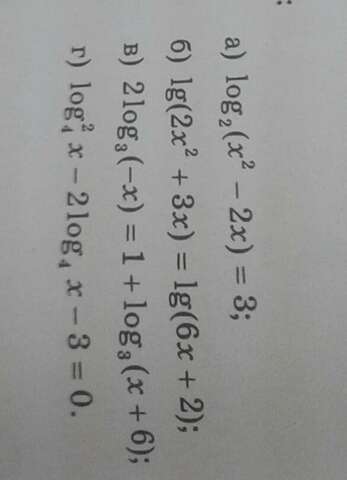 :
а) log₂(x² − 2x) = 3;
б) lg(2x² + 3x) = lg(6x + 2);
в) 2log₃(−x) = 1 + log₃(x + 6);
г) log₄² x − 2log₄ x − 3 = 0.